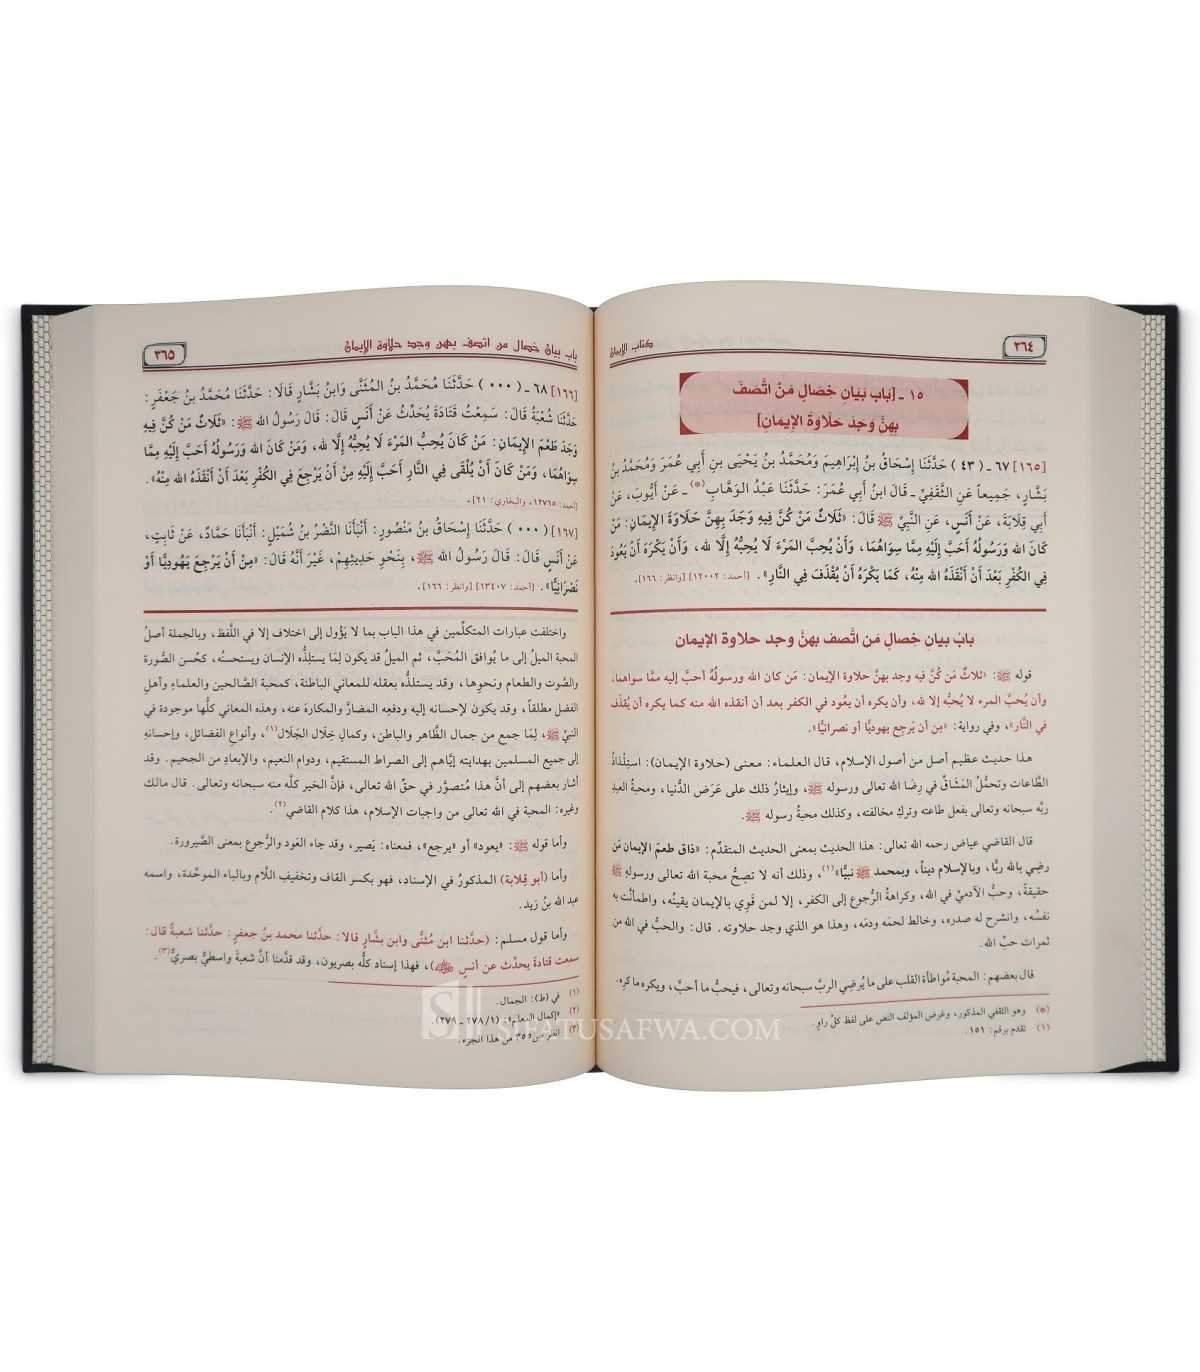 ٣٦٤
كتاب الإيمان
١٥ ـ [بَاب بَيَانِ خِصَالٍ مَنْ اتَّصَفَ
بِهِنَّ وَجَدَ حَلَاوَةَ الإِيمَانِ]
[١٦٥] ٦٧ ـ ( ٤٣ ) حَدَّثَنَا إِسْحَاقُ بنُ إِبْرَاهِيمَ وَمُحَمَّدُ بنُ يَحْيَى بنِ أَبِي عُمَرَ وَمُحَمَّدُ بنُ
بَشَّارٍ، جَمِيعاً عَنِ الثَّقَفِيِّ ـ قَالَ ابنُ أَبِي عُمَرَ: حَدَّثَنَا عَبْدُ الوَهَّابِ(*) ـ عَنْ أَيُّوبَ، عَنْ
أَبِي قِلَابَةَ، عَنْ أَنَسٍ، عَنِ النَّبِيِّ ﷺ قَالَ: «ثَلَاثٌ مَنْ كُنَّ فِيهِ وَجَدَ بِهِنَّ حَلَاوَةَ الإِيمَانِ: مَنْ
كَانَ اللهُ وَرَسُولُهُ أَحَبَّ إِلَيْهِ مِمَّا سِوَاهُمَا، وَأَنْ يُحِبَّ المَرْءَ لَا يُحِبُّهُ إِلَّا لله، وَأَنْ يَكْرَهَ أَنْ يَعُودَ
فِي الكُفْرِ بَعْدَ أَنْ أَنْقَذَهُ الله مِنْهُ، كَمَا يَكْرَهُ أَنْ يُقْذَفَ فِي النَّارِ». [أحمد: ١٢٠٠٢] [وانظر: ١٦٦].
بابُ بيانِ خِصالٍ مَن اتَّصف بهنَّ وجد حلاوة الإيمان
قوله ﷺ: «ثلاثٌ مَن كُنَّ فيه وجد بهنَّ حلاوة الإيمان: مَن كان الله ورسولُهُ أحبَّ إليه ممَّا سواهما،
وأن يُحبَّ المرء لا يُحبُّه إلا لله، وأن يكره أن يعُود في الكفر بعد أن أنقذه الله منه كما يكره أن يُقذف
في النَّار»، وفي رواية: «مِن أن يَرجع يهوديًّا أو نصرانيًّا».
هذا حديث عظيم أصل من أصول الإسلام، قال العلماء: معنى (حلاوة الإيمان): استِلْذاذُ
الطَّاعات وتحمُّلُ المَشَاقِّ في رِضَا الله تعالى ورسوله ﷺ، وإيثارُ ذلك على عَرَض الدُّنيا، ومحبةُ العبدِ
ربَّه سبحانه وتعالى بفعل طاعته وتركِ مخالفته، وكذلك محبةُ رسوله ﷺ.
قال القاضي عياض رحمه الله تعالى: هذا الحديث بمعنى الحديث المتقدِّم: «ذاق طعمَ الإيمان مَن
رضي بالله ربًّا، وبالإسلام ديناً، وبمحمد ﷺ نبيًّا»(١)، وذلك أنه لا تصِحُّ محبة الله تعالى ورسولهِ ﷺ
حقيقةً، وحبُّ الآدميِّ في الله، وكراهةُ الرُّجوع إلى الكفر، إلا لمن قَوِي بالإيمان يقينُه، واطمأنَّت به
نفسُه، وانشرح له صدره، وخالط لحمَه ودمَه، وهذا هو الذي وجد حلاوته. قال: والحبُّ في الله من
ثمرات حبِّ الله.
قال بعضهم: المحبة مُواطأة القلب على ما يُرضِي الربَّ سبحانه وتعالى، فيحبُّ ما أحبَّ، ويكره ما كَرِه.
(*) وهو الثقفي المذكور، وغرض المؤلف النص على لفظ كلِّ راوٍ.
(١) تقدم برقم: ١٥١.
باب بيان خصال من اتصف بهن وجد حلاوة الإيمان
٣٦٥
[١٦٦] ٦٨ ـ ( ٠٠٠ ) حَدَّثَنَا مُحَمَّدُ بنُ المُثَنَّى وَابنُ بَشَّارٍ قَالَا: حَدَّثَنَا مُحَمَّدُ بنُ جَعْفَرٍ:
حَدَّثَنَا شُعْبَةُ قَالَ: سَمِعْتُ قَتَادَةَ يُحَدِّثُ عَنْ أَنَسٍ قَالَ: قَالَ رَسُولُ الله ﷺ: «ثَلَاثٌ مَنْ كُنَّ فِيهِ
وَجَدَ طَعْمَ الإِيمَانِ: مَنْ كَانَ يُحِبُّ المَرْءَ لَا يُحِبُّهُ إِلَّا لله، وَمَنْ كَانَ الله وَرَسُولُهُ أَحَبَّ إِلَيْهِ مِمَّا
سِوَاهُمَا، وَمَنْ كَانَ أَنْ يُلْقَى فِي النَّارِ أَحَبَّ إِلَيْهِ مِنْ أَنْ يَرْجِعَ فِي الكُفْرِ بَعْدَ أَنْ أَنْقَذَهُ الله مِنْهُ».
[أحمد: ١٢٧٦٥، والبخاري: ٢١].
[١٦٧] ( ٠٠٠ ) حَدَّثَنَا إِسْحَاقُ بنُ مَنْصُورٍ: أَنْبَأَنَا النَّضْرُ بنُ شُمَيْلٍ: أَنْبَأَنَا حَمَّادٌ، عَنْ ثَابِتٍ،
عَنْ أَنَسٍ قَالَ: قَالَ رَسُولُ الله ﷺ، بِنَحْوِ حَدِيثِهِمْ، غَيْرَ أَنَّهُ قَالَ: «مِنْ أَنْ يَرْجِعَ يَهُودِيًّا أَوْ
نَصْرَانِيًّا». [أحمد: ١٣٤٠٧] [وانظر: ١٦٦].
واختلفت عبارات المتكلِّمين في هذا الباب بما لا يَؤُول إلى اختلاف إلا في اللَّفظ، وبالجملة أصلُ
المحبة الميلُ إلى ما يُوافق المُحَبَّ، ثم الميلُ قد يكون لِمَا يستلِذُّه الإنسان ويستحسنُه، كحُسن الصُّورة
والصَّوت والطعام ونحوِها، وقد يستلذُّه بعقله للمعاني الباطنة، كمحبة الصَّالحين والعلماءِ وأهلِ
الفضل مطلقاً، وقد يكون لإحسانه إليه ودفعِه المضارَّ والمكارهَ عنه، وهذه المعاني كلُّها موجودة في
النبيِّ ﷺ، لِمَا جمع من جمال الظَّاهر والباطن، وكمالِ خِلَال الجَلَال(١)، وأنواعِ الفضائل، وإحسانِه
إلى جميع المسلمين بهدايته إيَّاهم إلى الصراط المستقيم، ودوام النعيم، والإبعادِ من الجحيم. وقد
أشار بعضهم إلى أنَّ هذا مُتصوَّر في حقِّ الله تعالى، فإنَّ الخير كلَّه منه سبحانه وتعالى. قال مالك
وغيره: المحبة في الله تعالى من واجبات الإسلام، هذا كلام القاضي(٢).
وأما قوله ﷺ: «يعود» أو «يرجع»، فمعناه: يَصير، وقد جاء العَود والرُّجوع بمعنى الصَّيرورة.
وأما (أبو قِلابة) المذكورُ في الإسناد، فهو بكسر القاف وتخفيفِ اللَّام وبالباء الموحَّدة، واسمه
عبد الله بنُ زيد.
وأما قول مسلم: (حدَّثنا ابن مُثنًّى وابن بشَّارٍ قالا: حدَّثنا محمد بنُ جعفرٍ: حدَّثنا شعبةُ قال:
سمعت قتادةَ يحدِّث عن أنسٍ ﷺ)، فهذا إسناد كلُّه بصريون، وقد قدَّمنا أنَّ شعبةَ واسطيٌّ بصريٌّ(٣).
(١) في (ط): الجمال.
(٢) «إكمال المعلم»: (١/ ٢٧٨ ـ ٢٧٩).
(٣) انظر ص٣٥ من هذا الجزء.
SIFATUSAFWA.COM